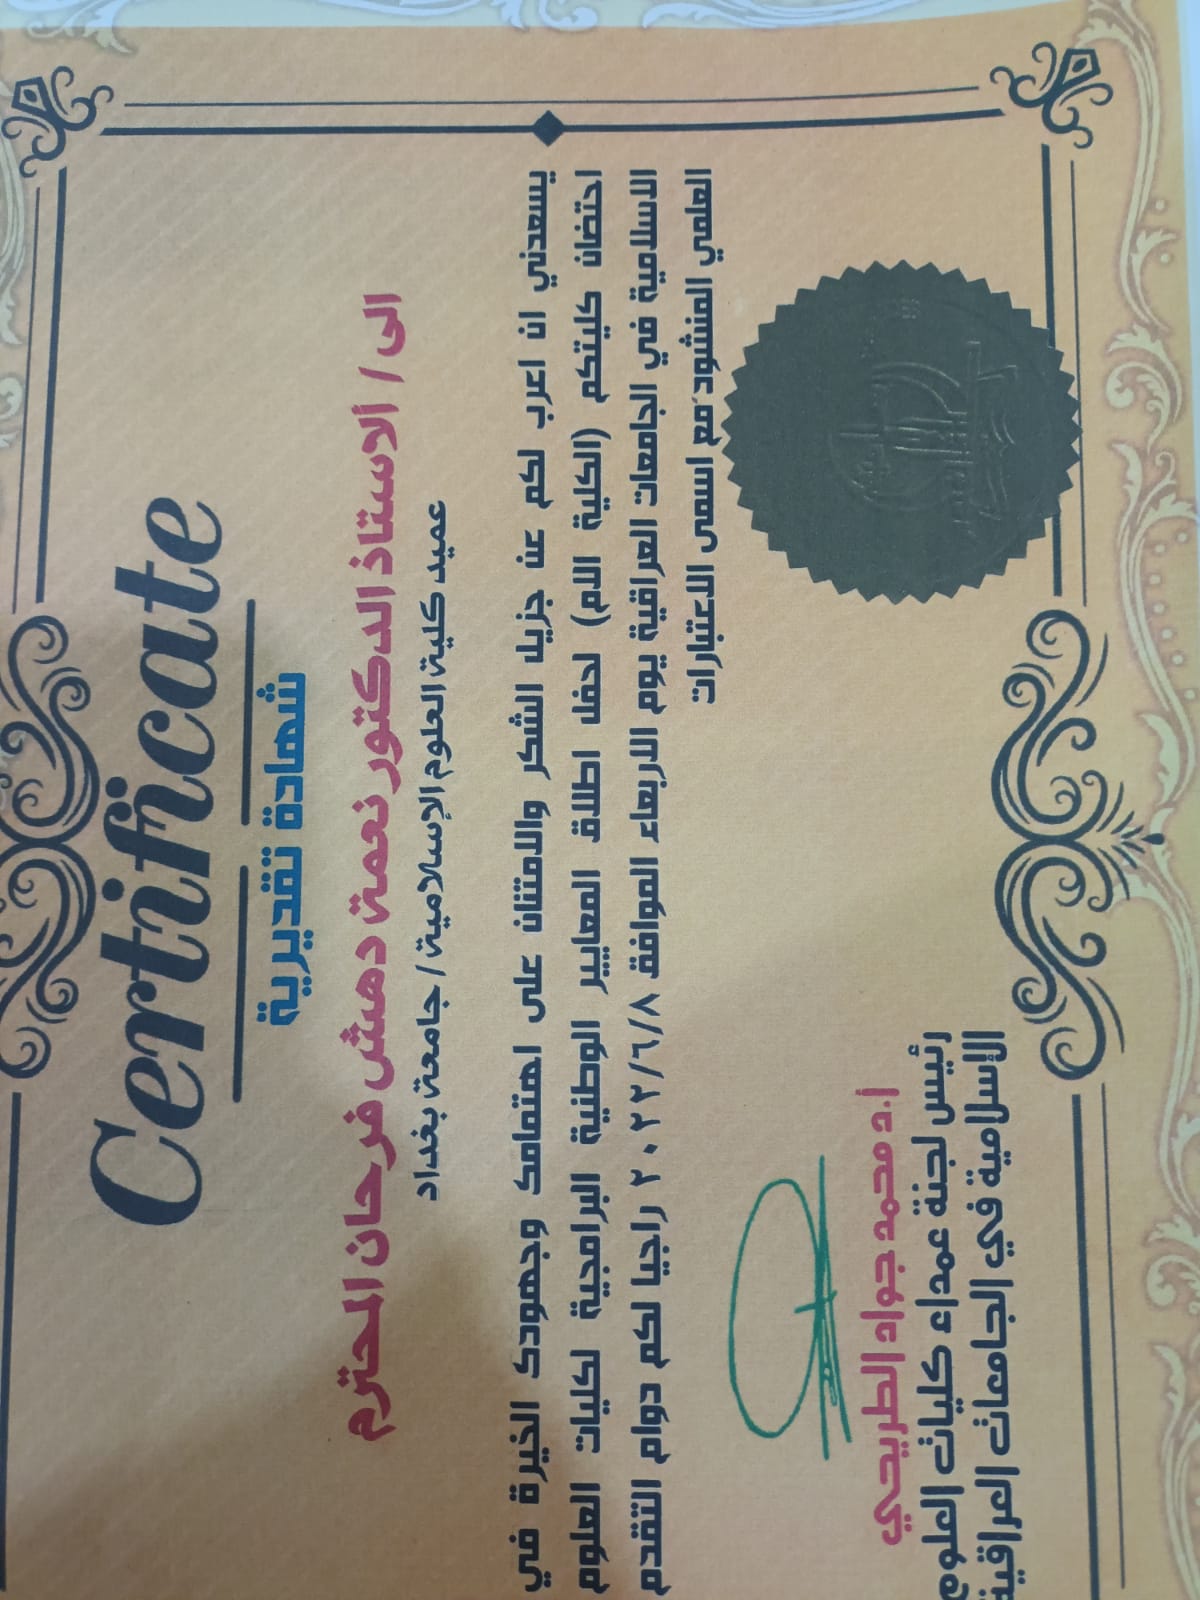 Certificate
شهادة تقديرية
الى / ألاستاذ الدكتور نعمة دهش فرحان المحترم
عميد كلية العلوم الإسلامية / جامعة بغداد
يسعدني ان اعرب لكم عن جزيل الشكر والامتنان على اهتمامك وجهودك الخيرة في
احتضان كليتكم (الكلية الام) لحفل اطلاق المعايير الوطنية البرامجية لكليات العلوم
الاسلامية في الجامعات العراقية يوم الاربعاء الموافق ٢٠٢٢/٦/٨ راجيا لكم دوام التقدم
العلمي المنشود مع اسمى الاعتبارات
أ.د محمد جواد الطريحي
رئيس لجنة عمداء كليات العلوم
الإسلامية في الجامعات العراقية